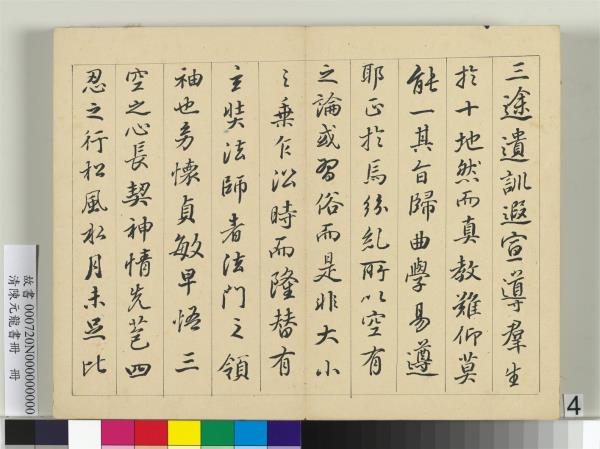 三途遺訓遐宣導群生
於十地然而真教難仰莫
能一其旨歸曲學易遵
耶正於焉紛糺所以空有
之論或習俗而是非大小
之乗乍沿時而隆替有
玄奘法師者法門之領
袖也㓜懷貞敏早悟三
空之心長契神情先苞四
忍之行松風水月未足比
故書 000720N000000000
清陳元龍書冊 冊
4